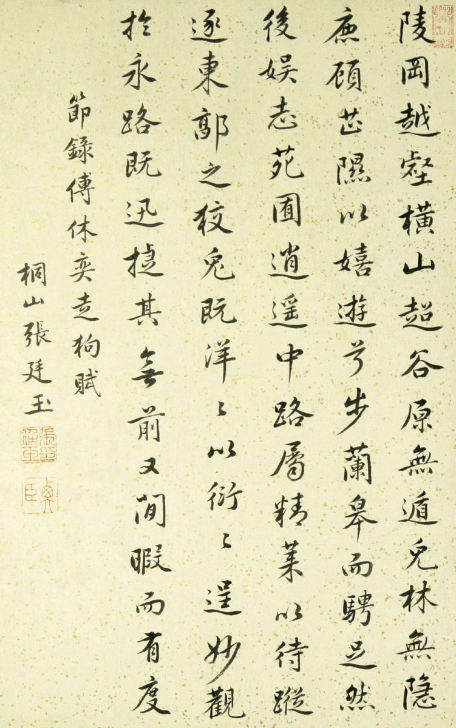 陵岡越壑橫山超谷原無遁兔林無隱
鹿顧芷隰以嬉遊兮步蘭皋而騁足然
後娛志苑囿逍遙中路屬精萊以待蹤
逐東郭之狡兔既洋〻以衍〻逞妙觀
於永路既迅捷其無前又閒暇而有度
節錄傅休奕走狗賦
桐山張廷玉
張廷玉